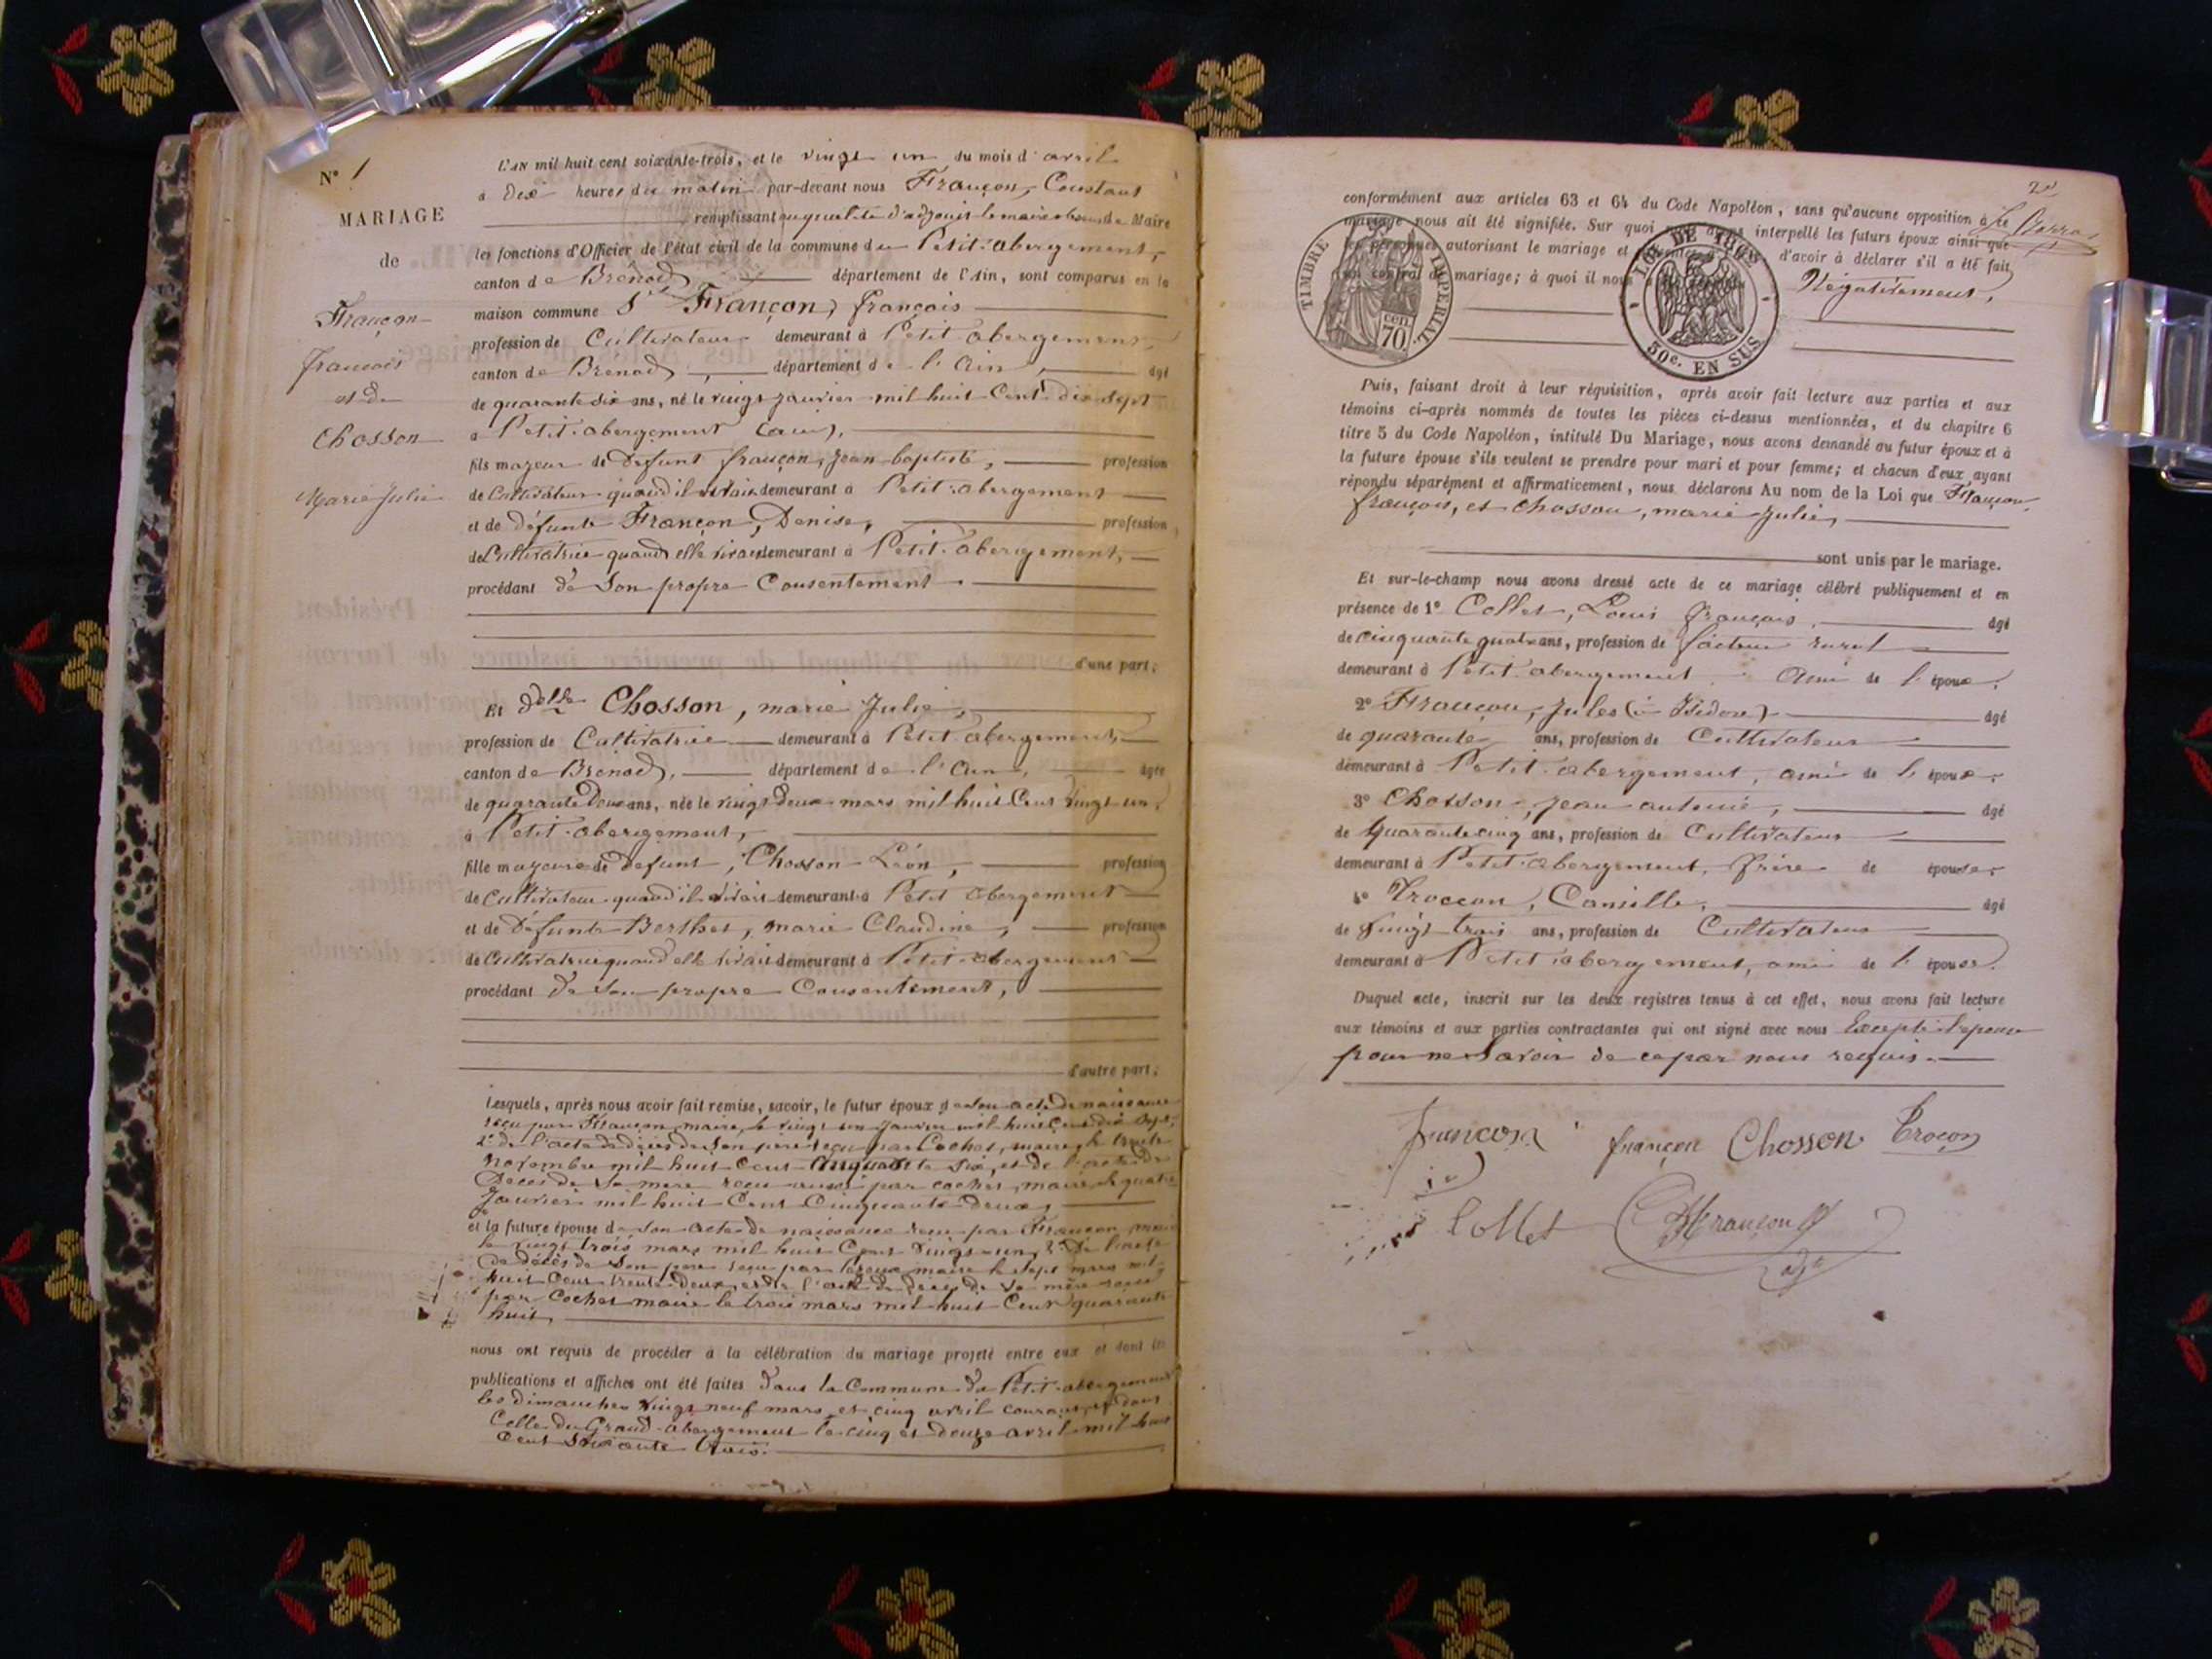 N° 1
MARIAGE
de
Françon
françois
et de
Chosson
Marie Julie
L'AN mil huit cent soixante-trois, et le vingt un du mois d'avril
à dix heures du matin par-devant nous Françon, Constant
remplissant en qualité d'adjoint le maire absent de Maire
les fonctions d'Officier de l'état civil de la commune du Petit-abergement,
canton de Brénod département de l'Ain, sont comparus en la
maison commune Sr Françon, françois
profession de Cultivateur demeurant à Petit abergement
canton de Brenod, département de l'Ain, âgé
de quarante six ans, né le vingt janvier mil huit Cent dix sept
à Petit-abergement (ain),
fils majeur de Defunt françon, Jean baptiste, profession
de Cultivateur quand il vivait demeurant à Petit-abergement
et de défunte Françon, Denise, profession
de Cultivatrice quand elle vivait demeurant à Petit-abergement,
procédant de Son propre Consentement.
d'une part;
Et delle Chosson, marie Julie,
profession de Cultivatrice demeurant à Petit abergement,
canton de Brénod, département de l'Ain, âgée
de quarante Deux ans, née le vingt Deux mars mil huit Cent vingt un,
à Petit-abergement,
fille majeure de Defunt, Chosson Léon, profession
de Cultivateur quand il vivait demeurant à Petit abergement
et de Défunte Berthet, marie Claudine, profession
de Cultivatrice quand elle vivait demeurant à Petit-abergement
procédant de Son propre Consentement,
d'autre part;
Lesquels, après nous avoir fait remise, savoir, le futur époux de Son acte de naissance
reçu par Françon, maire, le vingt un Janvier mil huit Cent dix Sept,
2° de l'acte de décès de Son père reçu par Cochet, maire, le trente
novembre mil huit Cent Cinquante Six, et de l'acte de
Décès de Sa mère reçu aussi par cochet, maire, le quatre
Janvier mil huit Cent Cinquante deux,
et la future épouse de Son acte de naissance reçu par Françon, maire
le vingt trois mars mil huit Cent vingt-un, 2° de l'acte
de décès de Son père reçu par maire le Sept mars mil
huit Cent trente Deux, et de l'acte de Décès de Sa mère reçu
par Cochet maire le trois mars mil huit Cent quarante
huit,
nous ont requis de procéder à la célébration du mariage projeté entre eux et dont les
publications et affiches ont été faites dans la Commune du Petit-abergement
les dimanches vingt neuf mars, et cinq avril courant, et dans
Celle du Grand-abergement le cinq et douze avril mil huit
Cent Soixante trois.
conformément aux articles 63 et 64 du Code Napoléon, sans qu'aucune opposition à ce
mariage nous ait été signifiée. Sur quoi nous avons interpellé les futurs époux ainsi que
les personnes autorisant le mariage et d'avoir à déclarer s'il a été fait
un contrat de mariage; à quoi il nous Négativement,
TIMBRE IMPERIAL
70 cen.
LOI DE 1862
30c. EN SUS
Puis, faisant droit à leur réquisition, après avoir fait lecture aux parties et aux
témoins ci-après nommés de toutes les pièces ci-dessus mentionnées, et du chapitre 6
titre 5 du Code Napoléon, intitulé Du Mariage, nous avons demandé au futur époux et à
la future épouse s'ils veulent se prendre pour mari et pour femme; et chacun d'eux ayant
répondu séparément et affirmativement, nous déclarons Au nom de la Loi que Françon,
françois, et chosson, marie Julie,
sont unis par le mariage.
Et sur-le-champ nous avons dressé acte de ce mariage célébré publiquement et en
présence de 1° Collet, Louis françois, âgé
de cinquante quatre ans, profession de facteur rural
demeurant à Petit-abergement ami de l'époux,
2° Françon, Jules (ô Isidore) âgé
de quarante ans, profession de Cultivateur
demeurant à Petit-abergement, ami de l'époux;
3° Chosson, Jean antoine, âgé
de Quarante cinq ans, profession de Cultivateur
demeurant à Petit-abergement, frère de épouse;
4° Troccon, Camille, âgé
de Vingt trois ans, profession de Cultivateur
demeurant à Petit abergement, ami de l'épouse.
Duquel acte, inscrit sur les deux registres tenus à cet effet, nous avons fait lecture
aux témoins et aux parties contractantes qui ont signé avec nous Excepté l'épouse
pour ne Savoir de ce par nous requis.
françon françon Chosson Trocon
Collet CFrançon
adjt